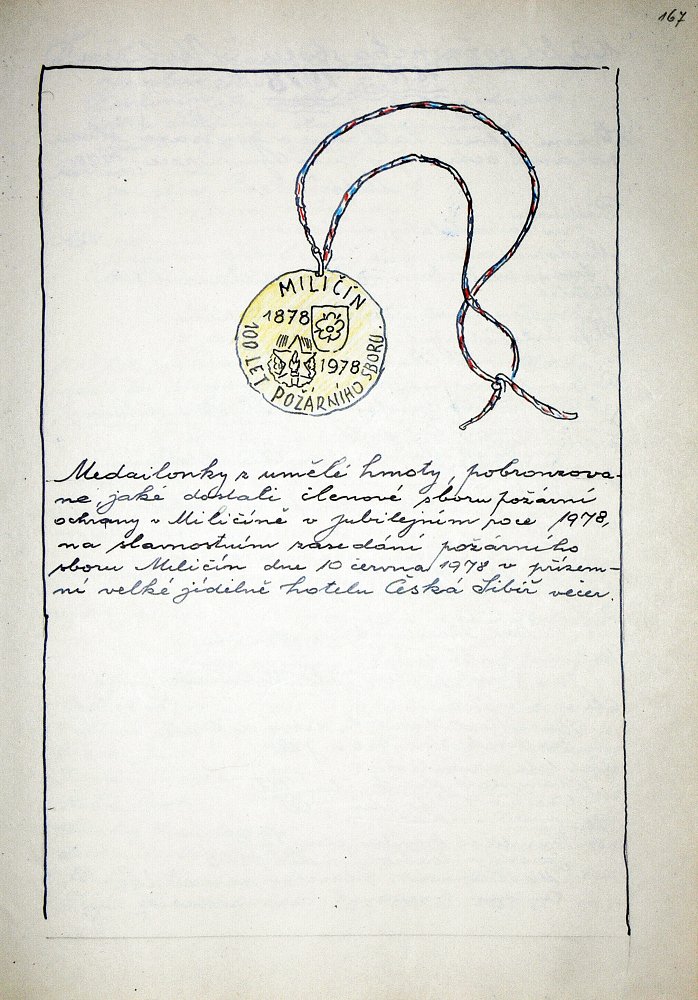 167
MILIČÍN
1878
1978
100 LET POŽÁRNÍHO SBORU.
Medailonky z umělé hmoty, pobronzova-
né, jaké dostali členové sboru požární
ochrany v Miličíně v jubilejním roce 1978,
na slavnostním zasedání požárního
sboru Miličín dne 10 června 1978 v přízem-
ní velké jídelně hotelu Česká Sibiř večer.